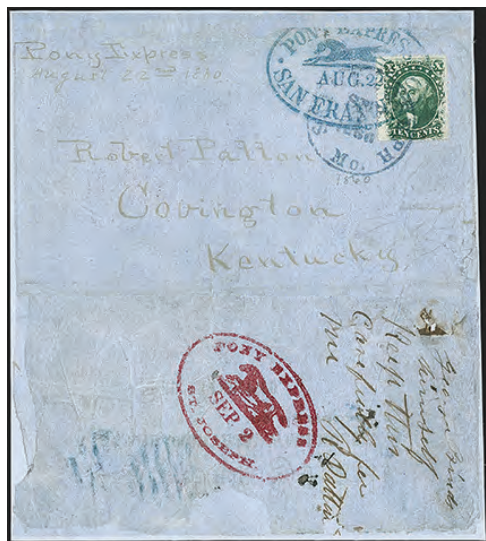 Pony Express
August 22nd 1860
PONY EXPRESS
AUG. 22
SAN FRAN
TEN CENTS
Mo.
1860
Robert Patton
Covington
Kentucky.
PONY EXPRESS
SEP 2
ST. JOSEPH
himself
Keep this
Carefully for
me
Patton